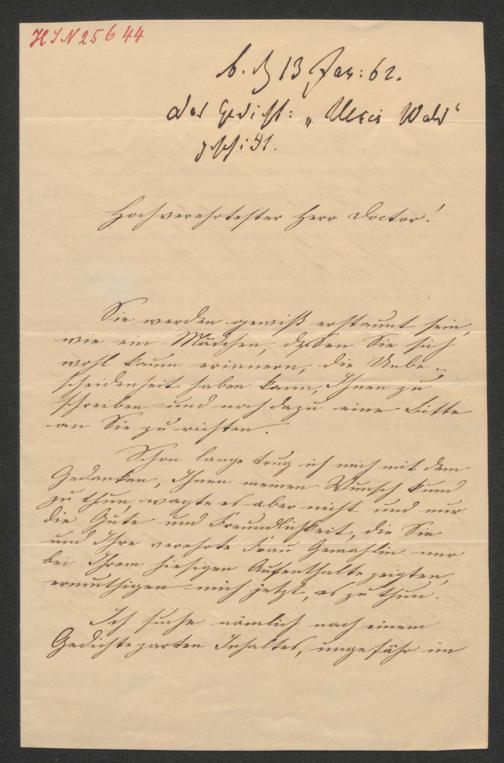 HIN 25644
b. d 13 Jan: 62.
das Gedicht: „ Wald“
Hochverehrtester Herr Doctor!
Sie werden gewiß erstaunt sein,
wie ein Mädchen, dessen Sie sich
wohl kaum erinnern, die Unbe-
scheidenheit haben kann, Ihnen zu
schreiben und noch dazu eine Bitte
an Sie zu richten.
Schon lange trug ich mich mit dem
Gedanken, Ihnen meinen Wunsch kund
zu thun, wagte es aber nicht und nur
die Güte und Freundlichkeit, die Sie
und Ihre verehrte Frau Gemahlin mir
bei Ihrem hiesigen Aufenthalte zeigten,
ermuthigen mich jetzt, es zu thun.
Ich suche nämlich nach einem
Gedichte zarten Inhaltes, ungefähr im